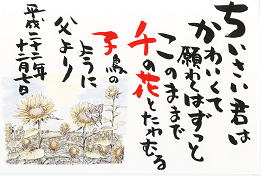 ちいさい君は
かわいくて
願わくはずっと
このままで
千の花とたわむる
子鳥の
ように
父より
平成二十二年
十一月七日